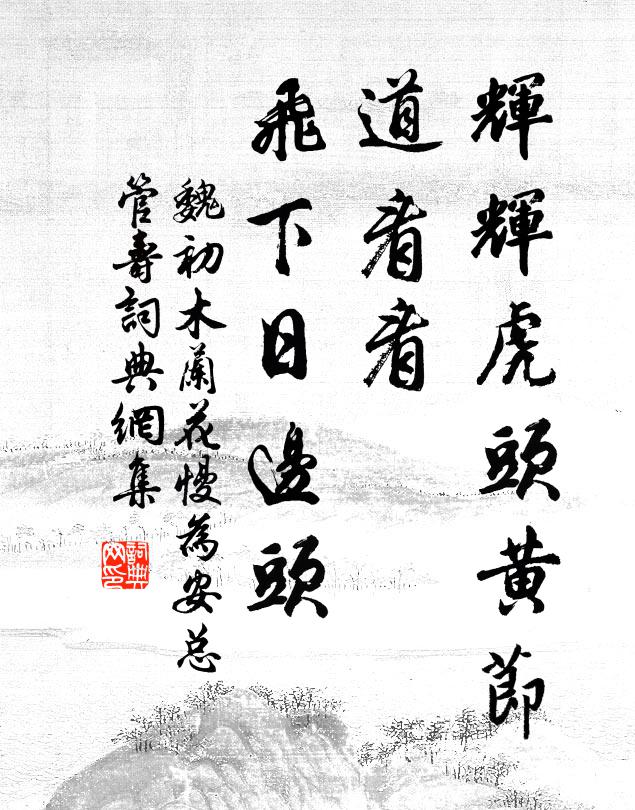 輝輝虎頭黃節
道看看
飛下日邊頭
魏初木蘭花慢為安总
管壽詞典網集
詞典
网印